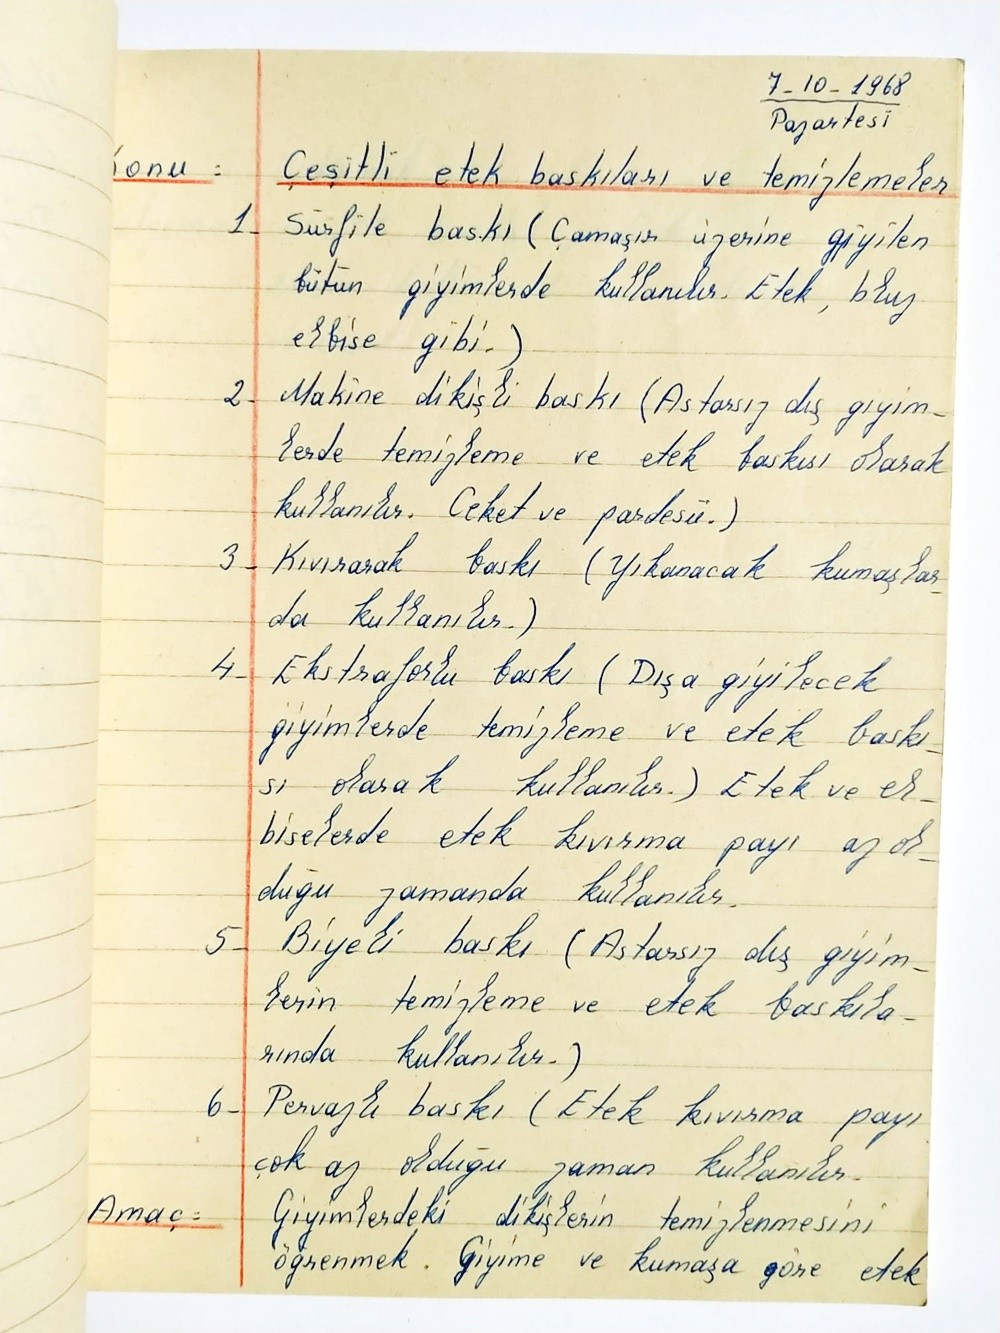 7-10-1968
Pazartesi
Konu : Çeşitli etek baskıları ve temizlemeler
1- Sürfile baskı (Çamaşır üzerine giyilen
bütün giyimlerde kullanılır. Etek, bluz
elbise gibi.)
2- Makine dikişli baskı (Astarsız dış giyim-
lerde temizleme ve etek baskısı olarak
kullanılır. Ceket ve pardesü.)
3- Kıvırarak baskı (Yıkanacak kumaşlar-
da kullanılır.)
4- Ekstraforlu baskı (Dışa giyilecek
giyimlerde temizleme ve etek baskı-
sı olarak kullanılır.) Etek ve el-
biselerde etek kıvırma payı az ol-
duğu zamanda kullanılır.
5- Biyeli baskı (Astarsız dış giyim-
lerin temizleme ve etek baskıla-
rında kullanılır.)
6- Pervazlı baskı (Etek kıvırma payı
çok az olduğu zaman kullanılır.
Amaç: Giyimlerdeki dikişlerin temizlenmesini
öğrenmek. Giyime ve kumaşa göre etek